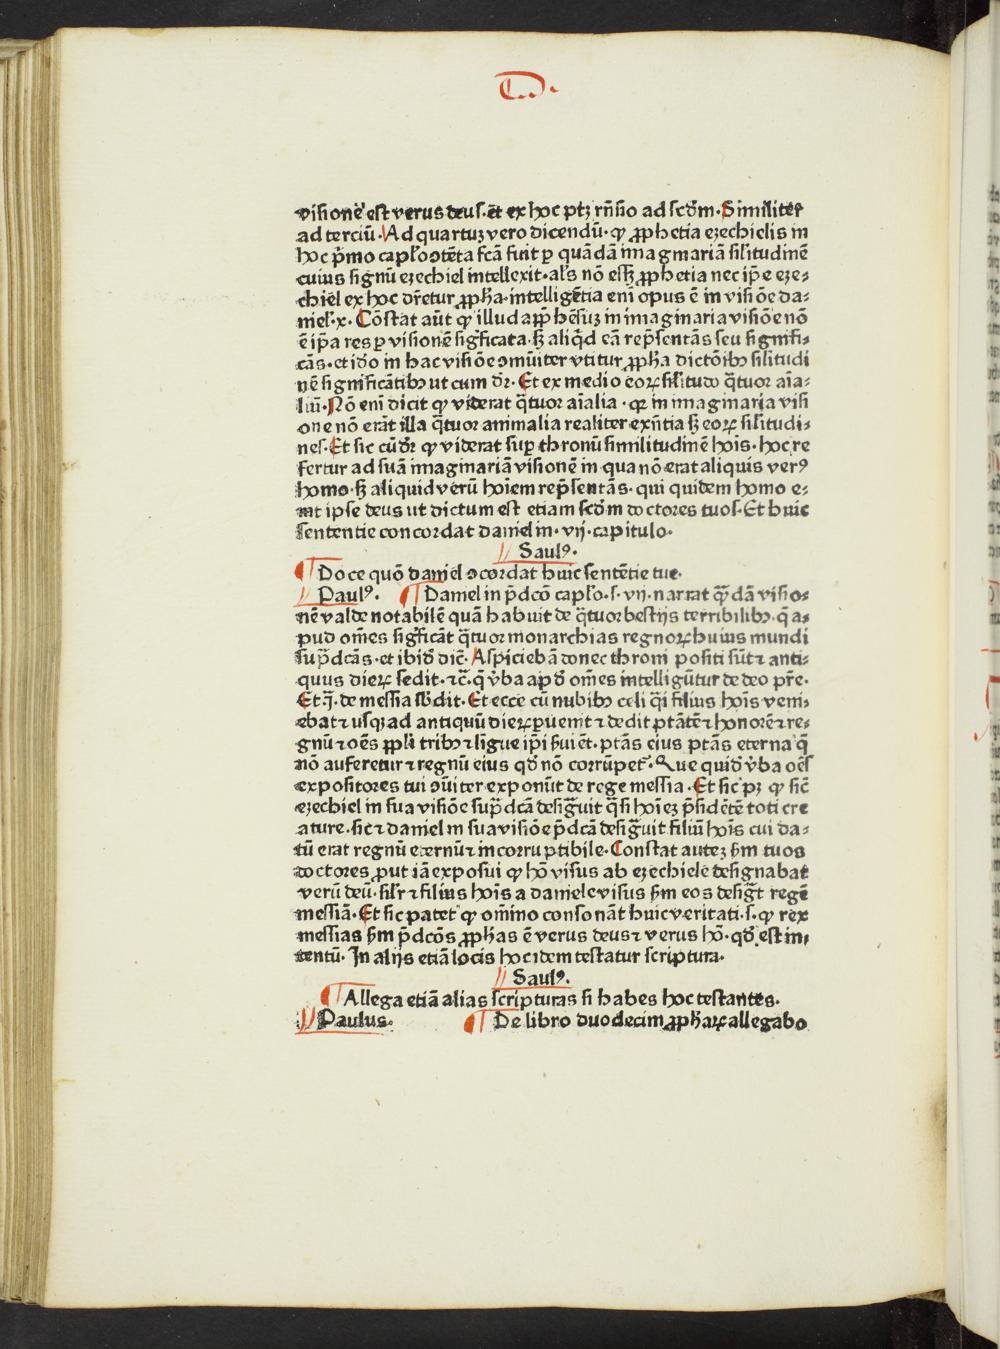 D.
visionē est verus deus. et̄ ex hoc ptꝫ rn̄sio ad scd̄m. Similiter
ad terciū. Ad quartuꝫ vero dicendū. ꝙ ꝓphetia eꝫechielis in
hoc p̄mo capl̓o ↄtēta fcā fuit ꝑ quādā imaginariā sil̓itudinē
cuius signū eꝫechiel intellexit. al̓s nō eēꝫ ꝓphetia nec ip̄e eꝫe⸗
chiel ex hoc dr̄etur ꝓph̄a. intelligētia enī opus ē in visiōe da⸗
niel̓. x. Cōstat aūt ꝙ illud apprehēsuꝫ in imaginaria visiōe nō
ē ip̄a res ꝑ visionē sigficata. sꝫ aliqͥd eā rep̄sentās seu signifi⸗
cās. et iđo in hac visiōe ↄmūiter vtitur ꝓph̄a dictōibꝫ silitudi
nē significātibꝫ ut cum dr̄. Et ex medio eoꝝ sil̓itudo qͣtuor aīa⸗
liū. Nō enī dicit ꝙ viderat qͣtuor aīalia. qꝛ in imaginaria visi
one nō erāt illa qͣtuor animalia realiter exn̄tia sꝫ eoꝝ sil̓itudi⸗
nes. Et sic cū dr̄ ꝙ viderat suꝑ thronū similitudinē hoīs. hoc re
fertur ad suā imaginariā visionē in qua nō erat aliquis verꝰ
homo. sꝫ aliquid verū hoīem rep̄sentās. qui quidem homo e⸗
rat ipse deus ut dictum est etiam scd̄m doctores tuos. Et huic
sententie concordat daniel in. vij. capitulo.
Saulꝰ.
Doce quō daniel ↄcordat huic sentētie tue.
Paulꝰ. Daniel in p̄dcō capl̓o. s. vij. narrat qͣdā visio⸗
nē valde notabilē quā habuit de qͣtuor bestijs terribilibꝫ. q̄ a⸗
pud om̄es sigficāt qͣtuor monarchias regnoꝝ huius mundi
sup̄dcās. et ibiđ dic̄. Aspiciebā donec throni positi sūt ⁊ anti⸗
quus dieꝝ sedit. ⁊c̄. q̄ v̓ba apđ om̄es intelligūtur de deo pr̄e.
Et. ȷ̄. de messia sb̓dit. Et ecce cū nubibꝫ celi qͣi filius hoīs veni⸗
ebat ⁊ usqꝫ ad antiquū dieꝝ ꝑuenit ⁊ dedit ptātē ⁊ honorē ⁊ re⸗
gnū ⁊ oēs ppl̓i tribꝫ ⁊ līgue ip̄i ẜuiēt. ptās eius ptās eterna q̄
nō auferetur ⁊ regnū eius qđ nō corrūpet̓. Que quiđ v̓ba oēs
expositores tui ↄūiter exponūt de rege messia. Et sic pꝫ ꝙ sic̄
eꝫechiel in sua visiōe sup̄dcā desigͣuit qͣsi hoīeꝫ p̄sidētē toti cre
ature. sic ⁊ daniel in sua visiōe p̄dcā desigͣuit filiū hoīs cui da⸗
tū erat regnū eternū ⁊ incorruptibile. Constat auteꝫ ẜm tuos
doctores ꝓut iā exposui ꝙ hō visus ab eꝫechiele designabat
verū deū. sil̓r ⁊ filius hoīs a daniele visus ẜm eos desigͣt regē
messiā. Et sic patet ꝙ om̄ino consonāt huic veritati. s. ꝙ rex
messias ẜm p̄dcōs ꝓph̄as ē verus deus ⁊ verus hō. qđ est in⸗
tentū. In alijs etiā locis hoc idem testatur scriptura.
Saulꝰ.
Allega etiā alias scripturas si habes hoc testantes.
Paulus. De libro duodecim ꝓph̄aꝝ allegabo